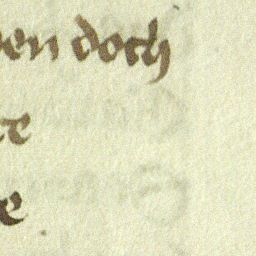 en doch
te
e